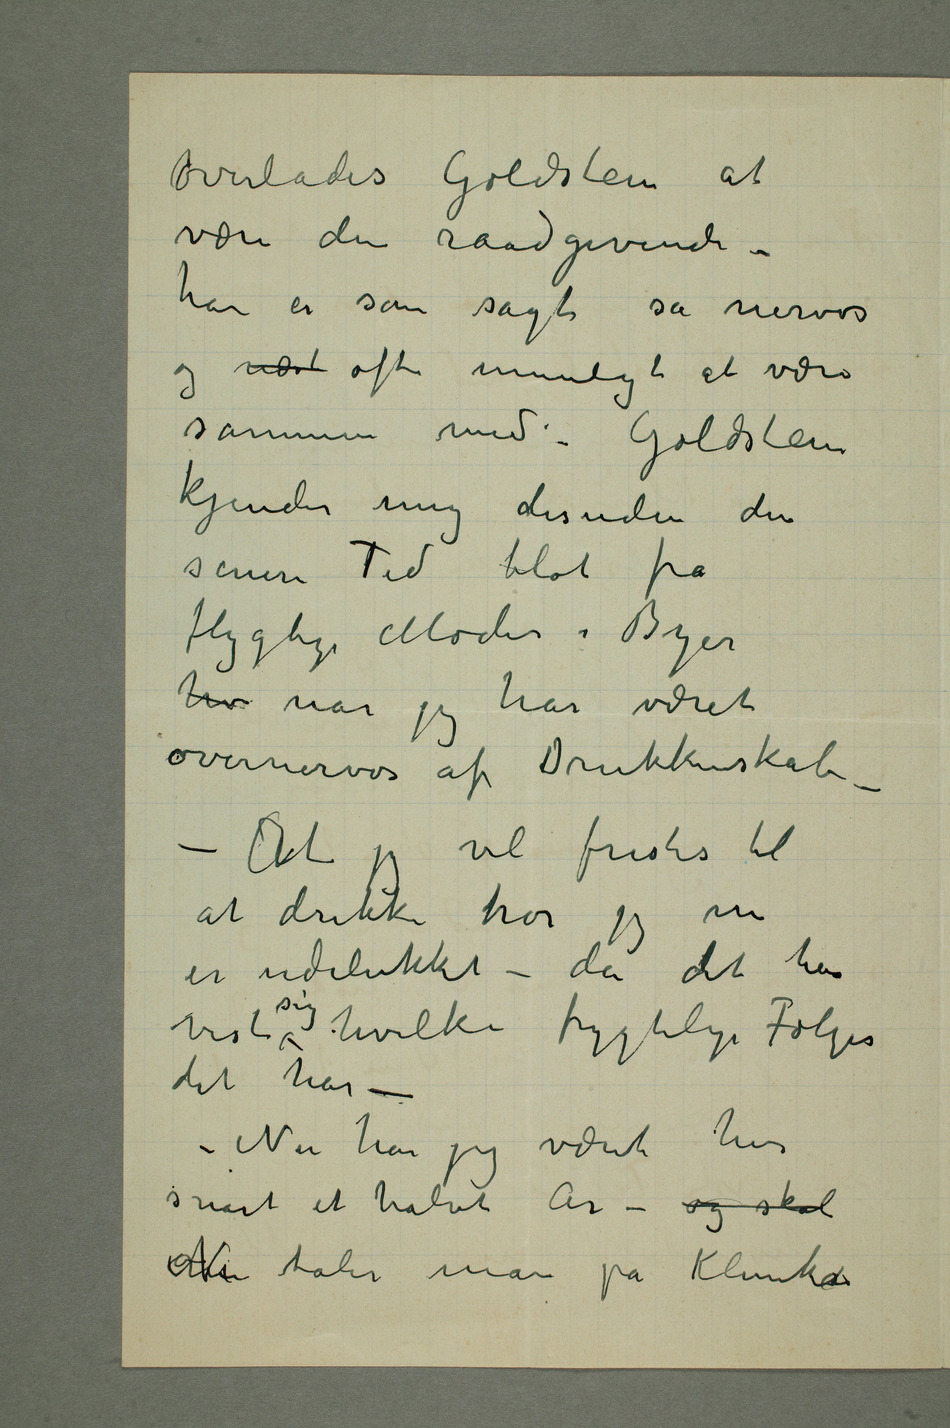 overlades Goldstein at
være den raadgivende –
han er som sagt så nervøs
og næst ofte umuligt at være
sammen med – Goldstein
kjender mig desuden den
senere Tid blot fra
flygtige Møder i Byer
hv når jeg har været
overnervøs af Drukkenskab –
– At jeg vil fristes til
at drikke tror jeg nu
er udelukket – da det har
vist sig hvilke frygtelige Følger
det har –
– Nu har jeg været her
snart et halvt År – og skal
Nu taler man på Kliniken